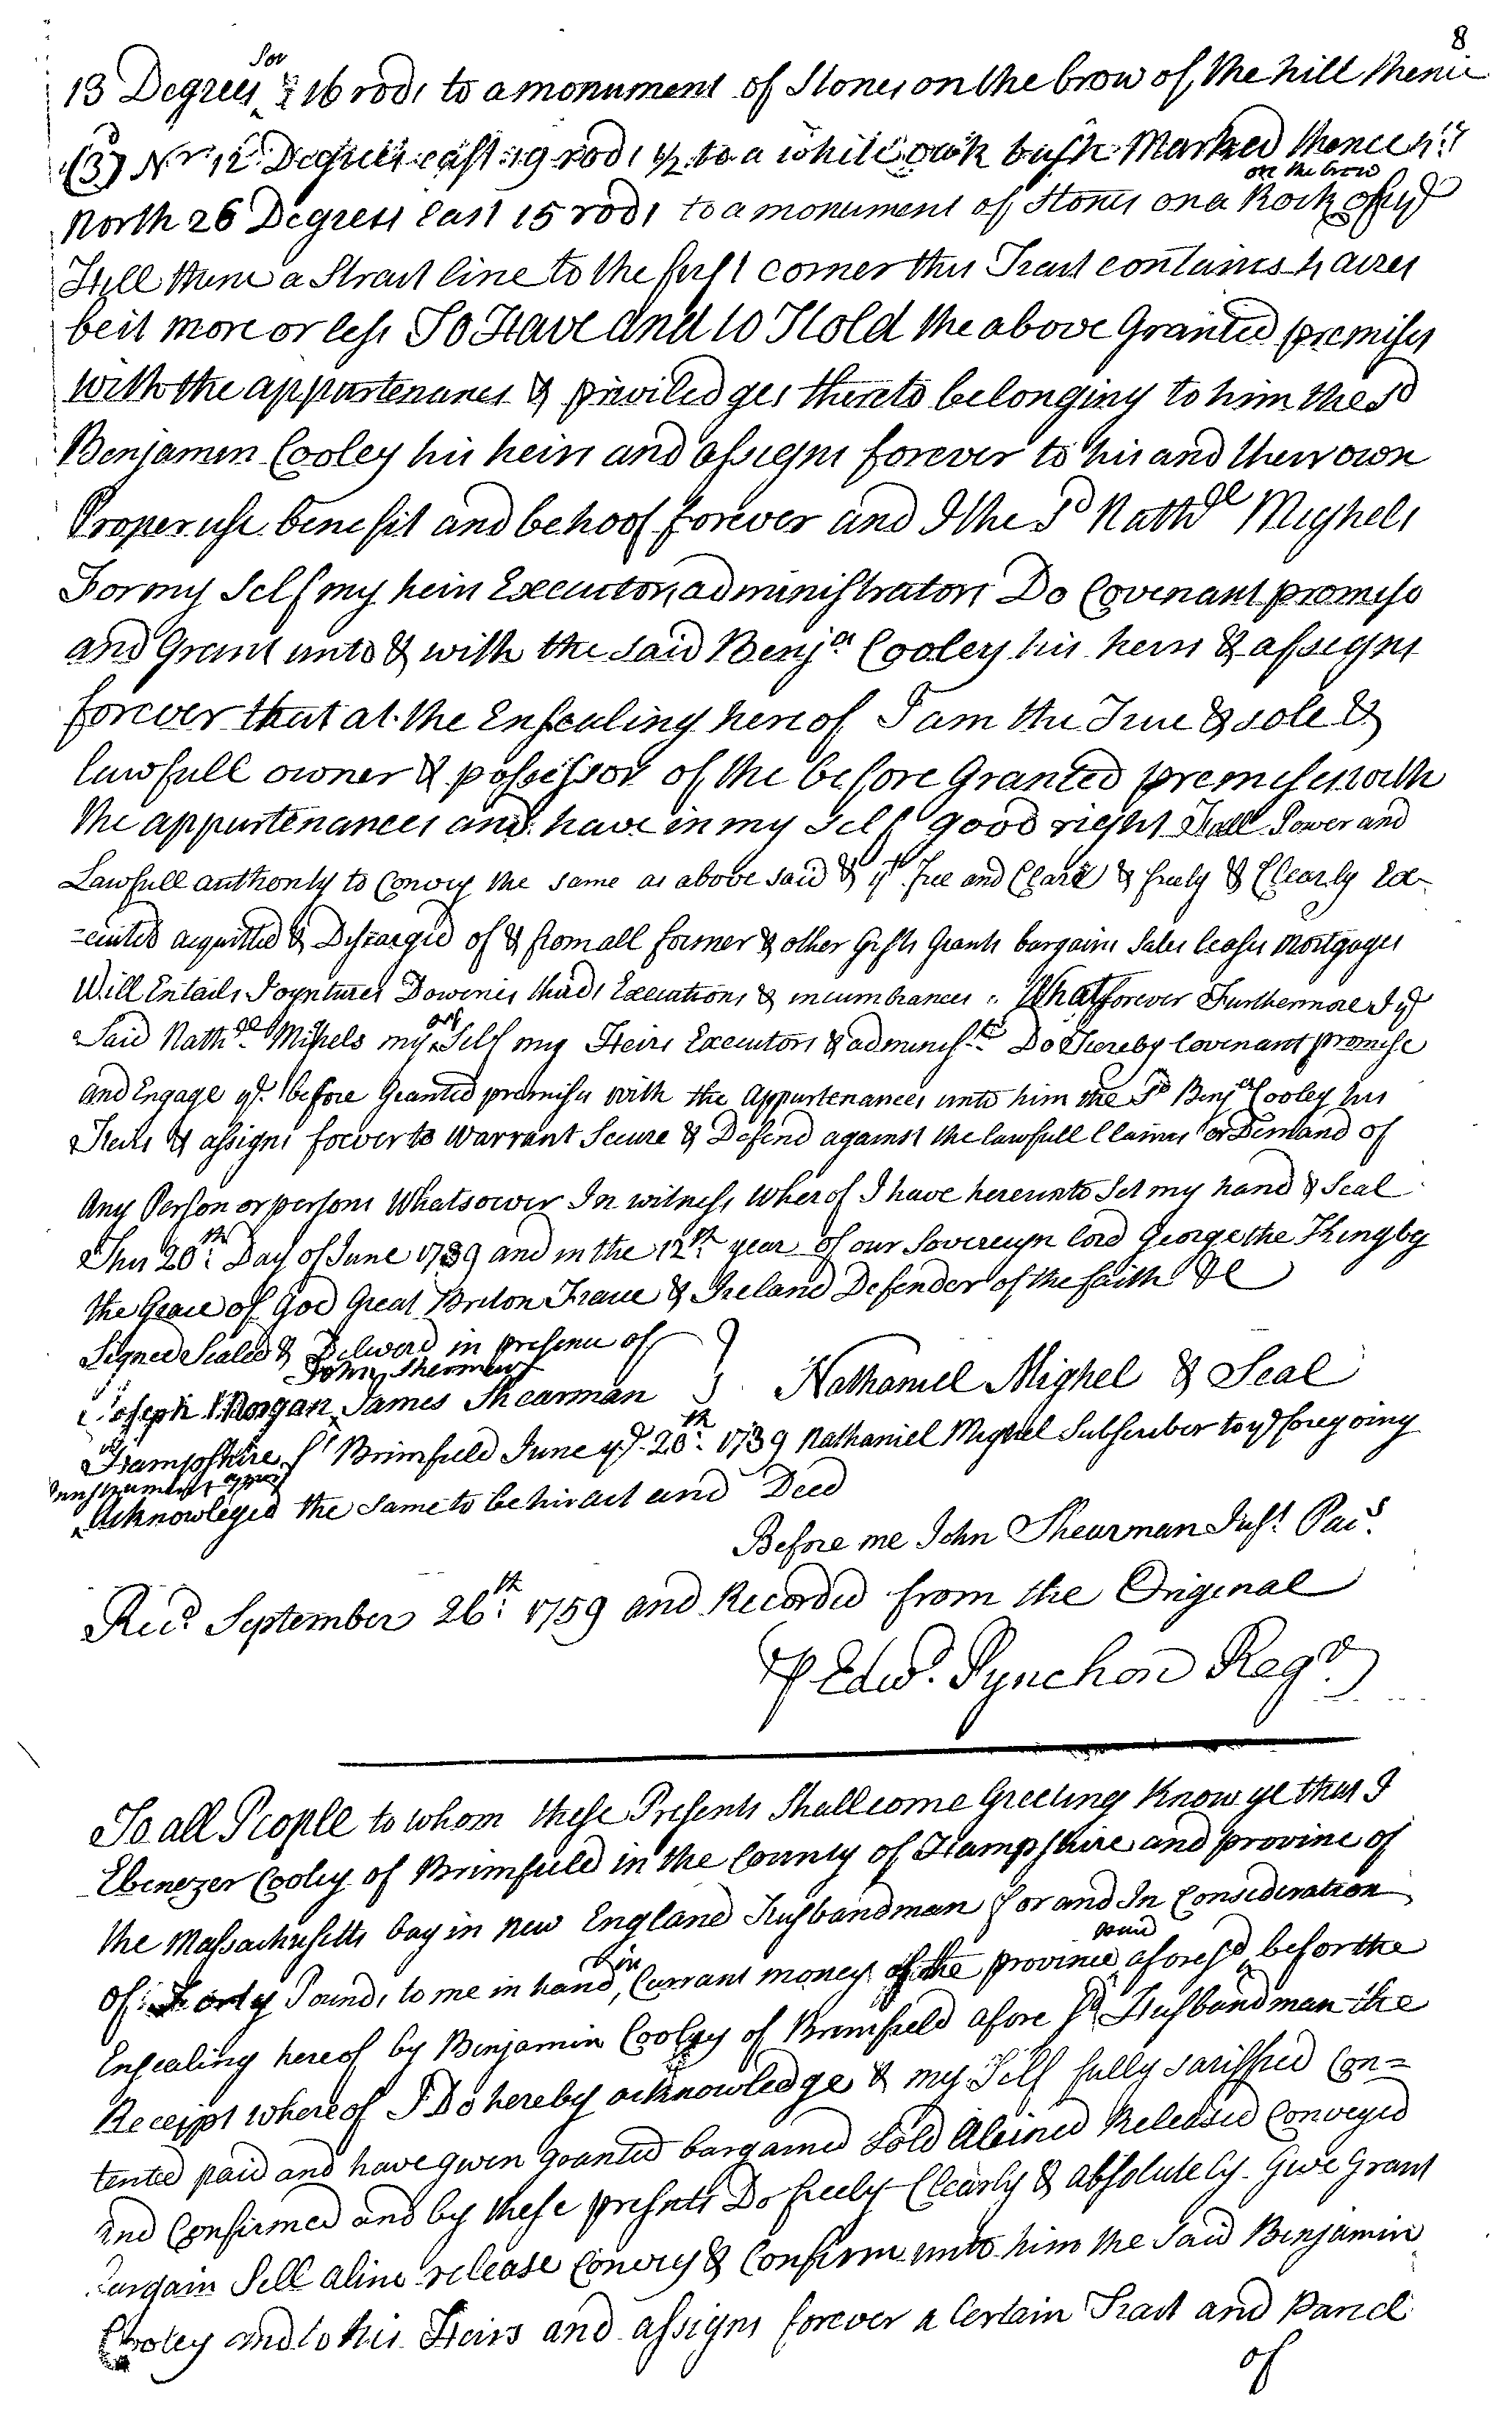 8
13 Degrees for 16 rods to a monument of Stones on the brow of the hill thence
(3d) Nr 12 Degrees east 19 rods 1/2 to a white oak bush Marked thence 4ly
North 26 Degrees East 15 rods to a monument of Stones on a Rock on the brow of sd
Hill thence a Strait line to the first corner this Tract contains 4 acres
be it more or less To Have and to Hold the above Granted premises
with the appurtenances & priviledges thereto belonging to him the sd
Benjamin Cooley his heirs and assigns forever to his and their own
Proper use benefit and behoof forever and I the sd Nathll Mighels
For my Self my heirs Executors, administrators Do Covenant promise
and Grant unto & with the said Benja Cooley his heirs & assigns
forever that at the Ensealing hereof I am the True & sole &
lawfull owner & possessor of the before Granted premises with
the appurtenances and have in my Self good right Full Power and
Lawfull authority to Convey the same as above said & yt free and Clare & freely & Clearly Ex-
=cuted acquitted & Discarged of & from all former & other Gifts Grants bargains Sales leases Mortgages
Will Entails Joyntures Doweries thirds Executions & incumbrances Whatsoever Furthermore I ye
Said Nathll Mihels my Self my Heirs Executors & administrs Do Hereby Covenant promise
and Engage ye before Granted premises with the Appurtenances unto him the sd Benja Cooley his
Heirs & assigns forever to Warrant Secure & Defend against the lawfull Claims or Demand of
Any Person or persons Whatsoever In witness Wherof I have hereunto Set my hand & Seal
This 20th Day of June 1739 and in the 12th year of our Sovereign lord George the King by
the Grace of God Great Briton France & Ireland Defender of the faith &c
Signed Sealed & Deliverd in presence of
John Sherman
Joseph Morgan James Shearman Nathaniel Mighel & Seal
Hampshire ss Brimfield June ye 20th 1739 Nathaniel Mighel Subscriber to ye foregoing
Acknowleged the same to be his act and Deed
Before me John Shearman Just Pacs
Recd September 26th 1759 and Recorded from the Original
P Edwd Pynchon Regr
To all People to whom these Presents Shall come Greeting Know ye that I
Ebenezer Cooley of Brimfield in the County of Hampshire and provine of
the Massachusetts bay in New England Husbandman for and In Consideration
of Forty Pounds to me in hand, in Currant money of the province aforesd paid before the
Ensealing hereof by Benjamin Cooley of Brimfield afore sd Husbandman the
Receippt whereof I Do hereby acknowledge & my Self fully sattisfied Con=
tented paid and have given granted bargained Sold Aleined Released Conveyed
and Confirmed and by these presnts Do freely Clearly & absolutely Give Grant
bargain Sell aline release Convey & Confirm unto him the said Benjamin
Cooley and to his Heirs and assigns forever a Certain Tract and Parcel
of